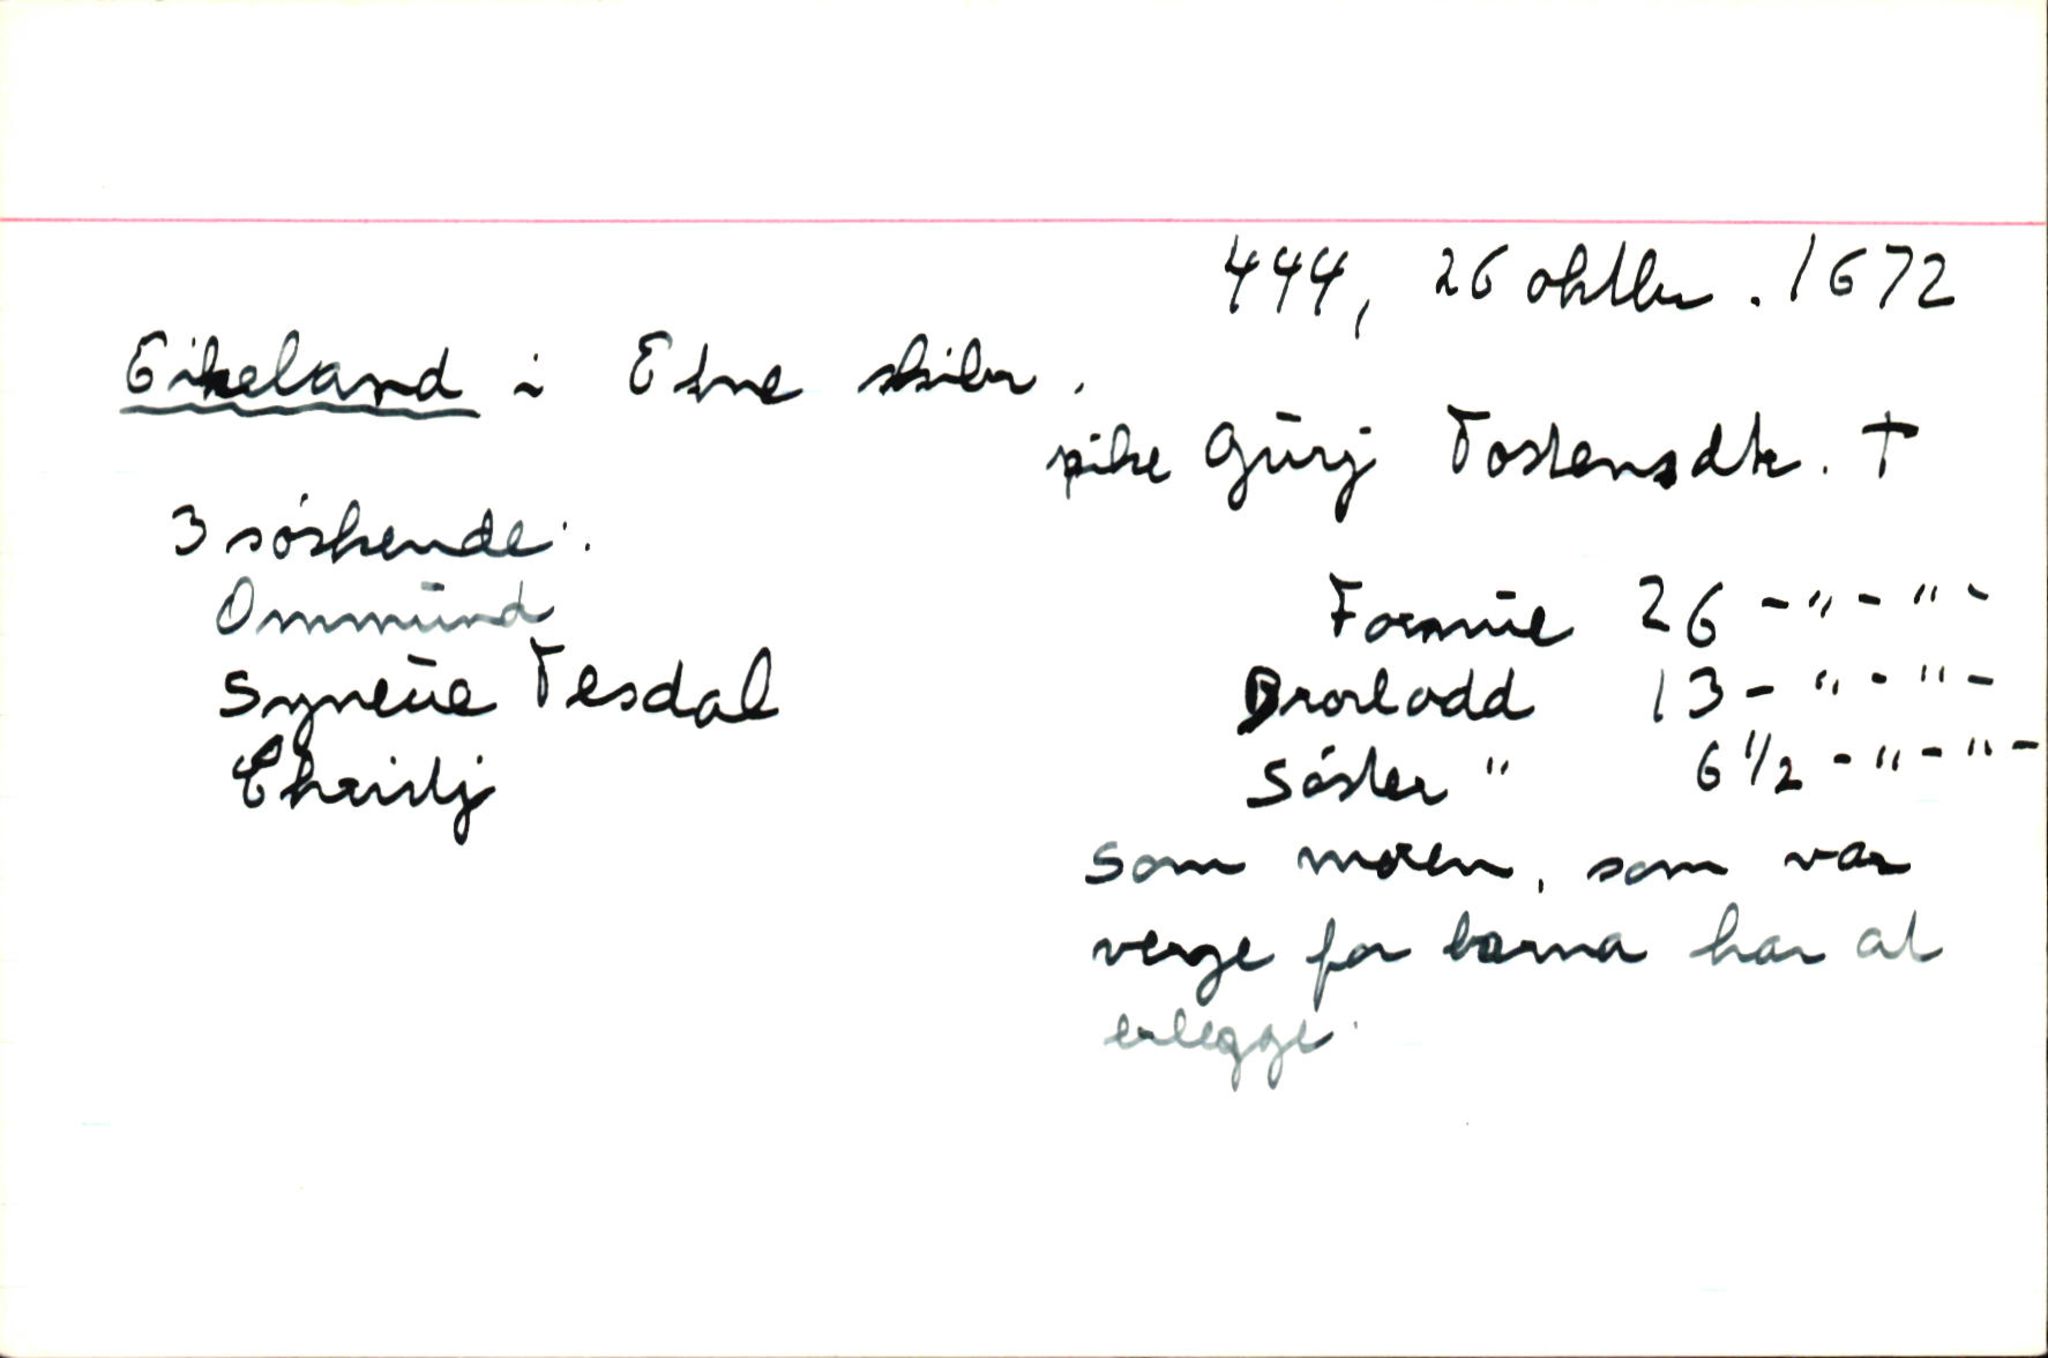 444, 26 oktbr. 1672
Eikeland i Etne skibr.
pike Gurj Tostensdtr. †
3 søskende:
Ommund
Syneue Tesdal
Christj
Formue 26 - " - " -
Brorlodd 13 - " - " -
Søster " 6 1/2 - " - " -
som moren, som var
verge for barna har at
erlegge.